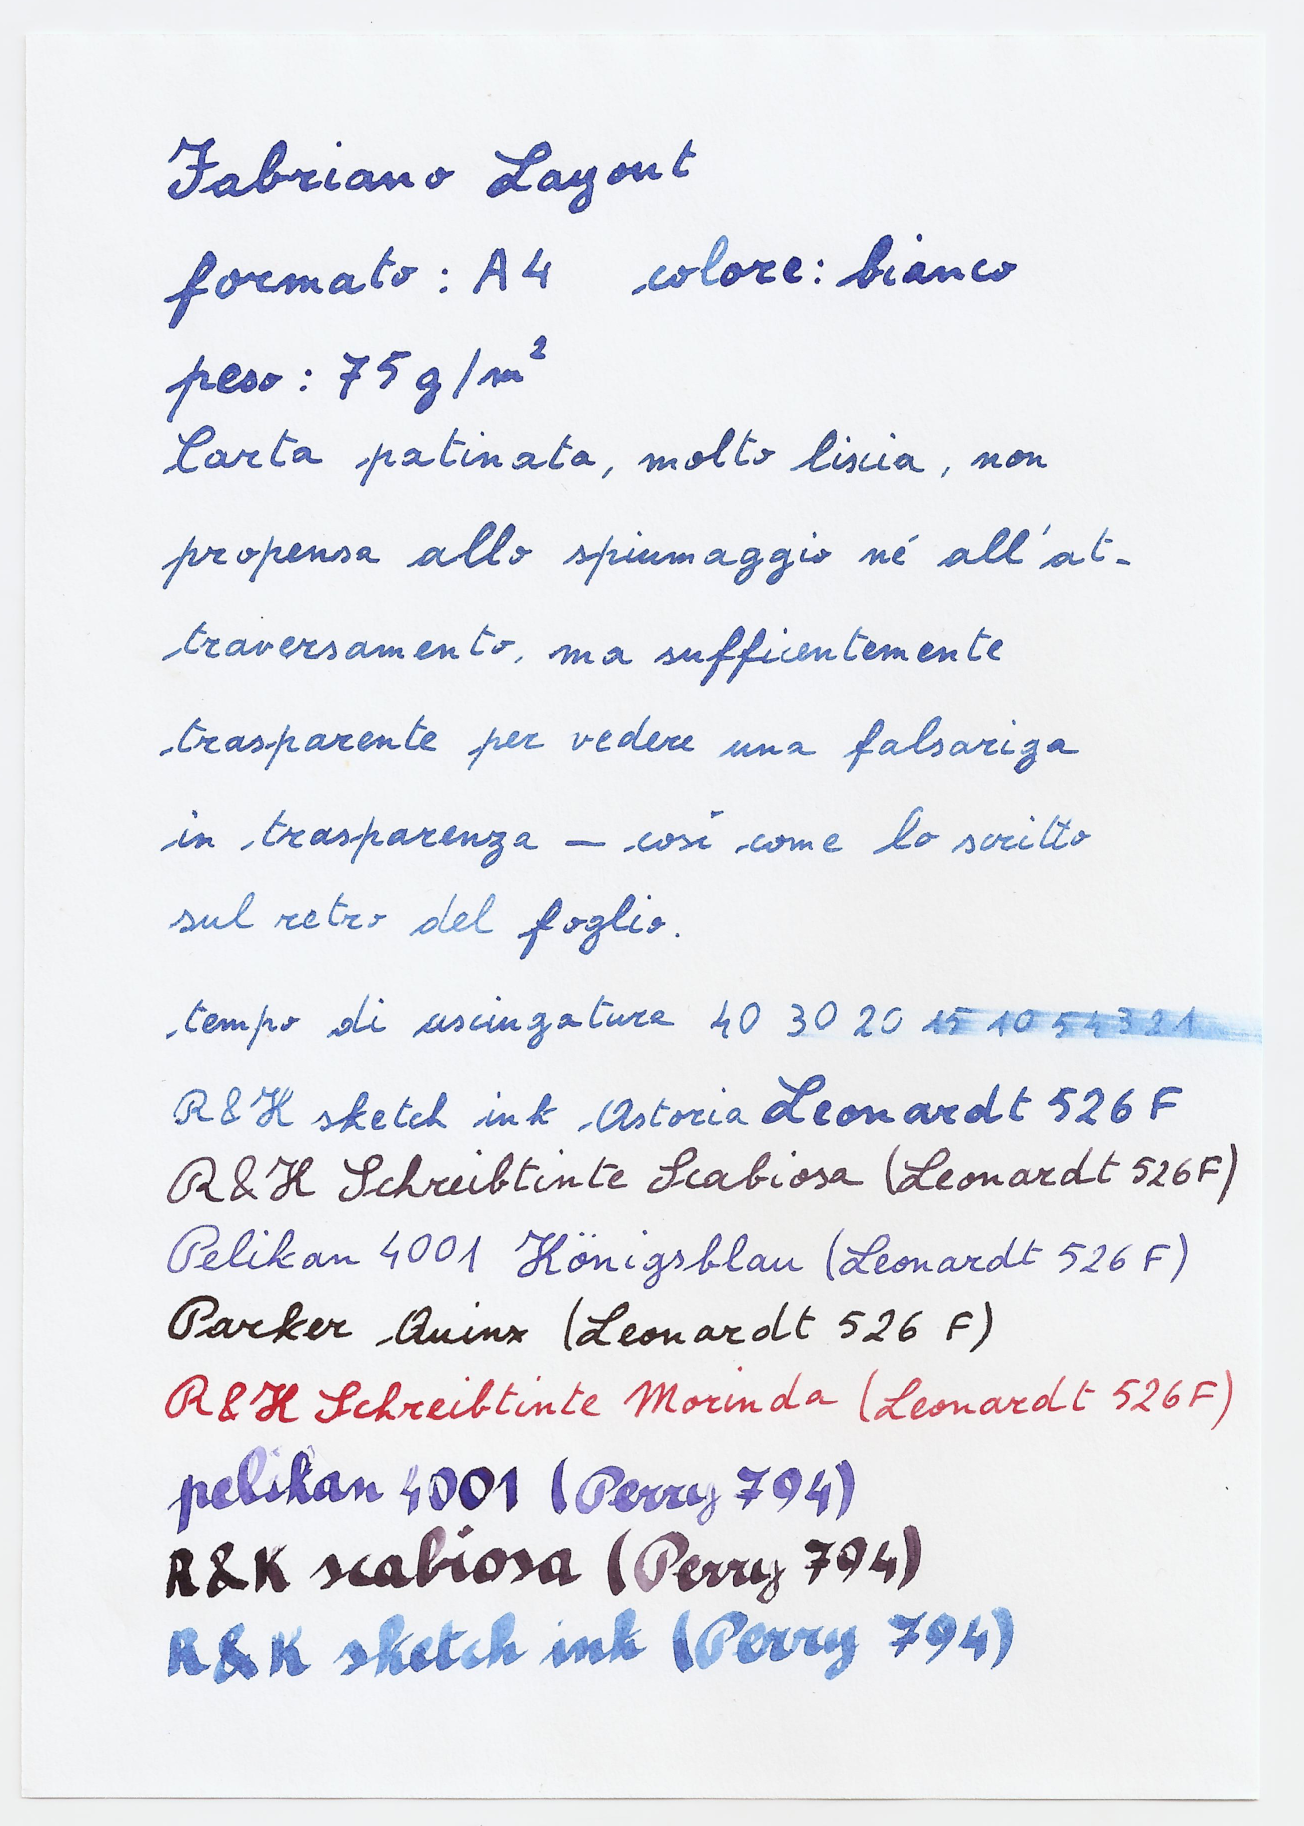 Fabriano Layout
formato: A4 colore: bianco
peso: 75 g/m²
Carta patinata, molto liscia, non
propensa allo spiumaggio né all'at-
traversamento, ma sufficentemente
trasparente per vedere una falsariga
in trasparenza — così come lo scritto
sul retro del foglio.
tempo di asciugatura 40 30 20 15 10 5 4 3 2 1
R&K sketch ink Astoria Leonardt 526 F
R&K Schreibtinte Scabiosa (Leonardt 526F)
Pelikan 4001 Königsblau (Leonardt 526 F)
Parker Quink (Leonardt 526 F)
R&K Schreibtinte Morinda (Leonardt 526F)
pelikan 4001 (Perry 794)
R&K scabiosa (Perry 794)
R&K sketch ink (Perry 794)